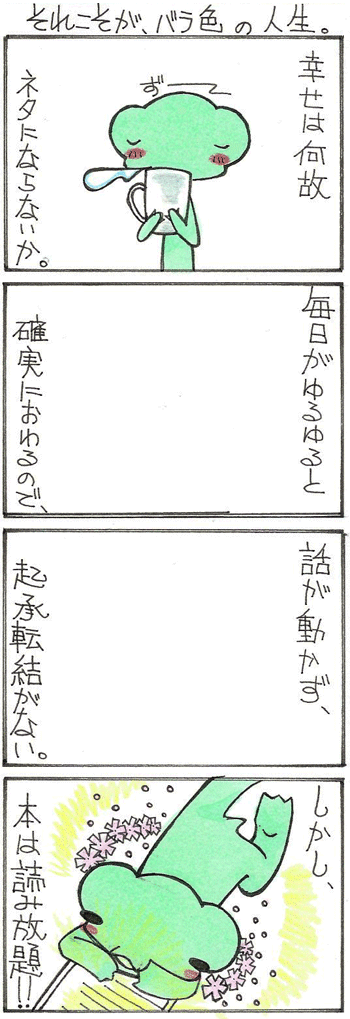 それこそが、バラ色の人生。
幸せは何故
ネタにならないか。
ずーー
毎日がゆるゆると
確実におわるので、
話が動かず、
起承転結がない。
しかし、
本は読み放題!!